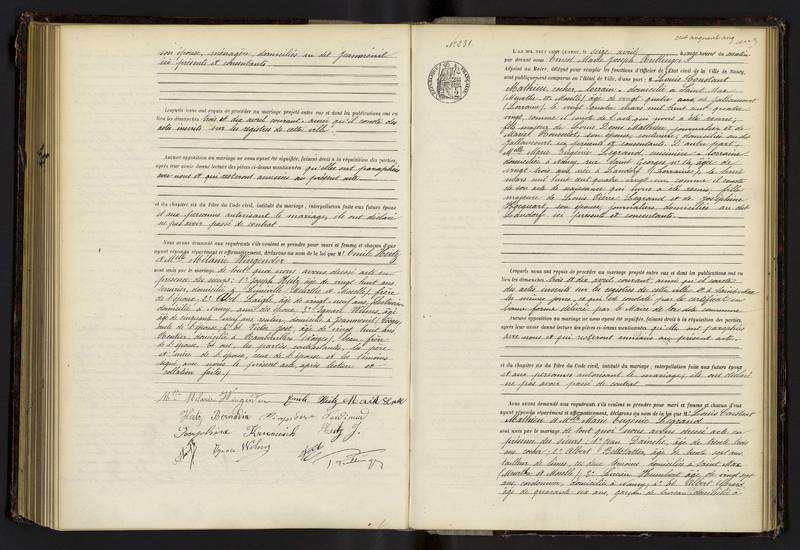 son épouse, ménagère, domiciliés au dit Jeanménil
ici présents et consentants.
Lesquels nous ont requis de procéder au mariage projeté entre eux et dont les publications ont eu
lieu les dimanches trois et dix avril courant, ainsi qu'il conste des
acte inscrits sur les registres de cette ville
Aucune opposition au mariage ne nous ayant été signifiée, faisant droit à la réquisition des parties,
après leur avoir donné lecture des pièces ci-dessus mentionnées qu'elles ont paraphées
avec nous et qui resteront annexées au présent acte
et du chapitre six du Titre du Code civil, intitulé du mariage; interpellation faite aux futurs époux
et aux personnes autorisant le mariage, ils ont déclaré
ne pas avoir passé de contrat
Nous avons demandé aux requérants s'ils veulent se prendre pour mari et femme, et chacun d'eux
ayant répondu séparément et affirmativement, déclarons au nom de la loi que Mr Emile Heitz
et Melle Mélanie Wingender
sont unis par le mariage de tout quoi nous avons dressé acte en
présence des sieurs: 1° Joseph Heitz, âgé de vingt huit ans
domicilié à Lunéville (Meurthe et Moselle), frère
de l'époux; 2° Abel Laigle, âgé de vingt neuf ans
domicilié à Nancy, ami de l'époux; 3° Ignace
âgé de cinquante neuf ans, domicilié à Jeanménil, Vosges,
de l'épouse; 4° Victor Jost, âgé de vingt huit ans,
domicilié à Rambervillers (Vosges), beau frère
de l'épouse. Et ont, les parties contractantes, les père
et mère de l'époux, ceux de l'épouse et les témoins
signé avec nous le présent acte, après lecture et
collation faites.
Mélanie Wingender Emile Heitz
Heitz
Joséphine Heitz J.
Ignace
Jost
N° 231
cent cinquante cinq
L'AN MIL NEUF CENT QUATRE, le seize avril à onze heures du matin
par devant nous Ernest Marie Joseph
Adjoint au Maire, délégué pour remplir les fonctions d'Officier de l'État civil de la Ville de Nancy,
sont publiquement comparus en l'Hôtel de Ville, d'une part: M. Louis Constant
Mathieu cocher, lorrain, domicilié à Saint Max
(Meurthe et Moselle), âgé de vingt quatre ans, né à
(Lorraine), le vingt quatre mars mil huit cent quatre
vingt, comme il conste de l'acte qui nous a été remis;
fils majeur de Louis Denis Mathieu, journalier, et de
Marie son épouse, couturière, domiciliés au dit
ici présents et consentants. D'autre part
Melle Marie Eugénie Legrand, cuisinière, lorraine
domiciliée à Nancy, rue Saint Georges, âgée de
vingt trois ans, née à Landorf (Lorraine), le
mars mil huit cent quatre vingt un, comme il conste
de son acte de naissance qui nous a été remis, fille
majeure de Louis Pierre Legrand et de Joséphine
son épouse, journaliers, domiciliés au dit
Landorf ici présents et consentants.
Lesquels nous ont requis de procéder au mariage projeté entre eux et dont les publications ont eu
lieu les dimanches trois et dix avril courant, ainsi qu'il conste
des acte inscrits sur les registres de cette ville et à Saint Max
les mêmes jours, ce qui est constaté par le certificat en
bonne forme délivré par le Maire de la dite commune
Aucune opposition au mariage ne nous ayant été signifiée, faisant droit à la réquisition des parties,
après leur avoir donné lecture des pièces ci-dessus mentionnées qu'elles ont paraphées
avec nous et qui resteront annexées au présent acte.
et du chapitre six du Titre du Code civil, intitulé du mariage; interpellation faite aux futurs époux
et aux personnes autorisant le mariage, ils ont déclaré
ne pas avoir passé de contrat
Nous avons demandé aux requérants s'ils veulent se prendre pour mari et femme et chacun d'eux
ayant répondu séparément et affirmativement, déclarons au nom de la loi que Mr Louis Constant
Mathieu et Melle Marie Eugénie Legrand
sont unis par le mariage de tout quoi nous avons dressé acte en
présence des sieurs: 1° Jean âgé de trente trois
ans, cocher; 2° Albert âgé de trente sept ans,
tailleur de limes, ces deux témoins domiciliés à Saint Max
(Meurthe et Moselle); 3° Lucien Humbert âgé de vingt sept
ans, cordonnier, domicilié à Nancy; 4° Albert
âgé de quarante six ans, garçon de bureau, domicilié à